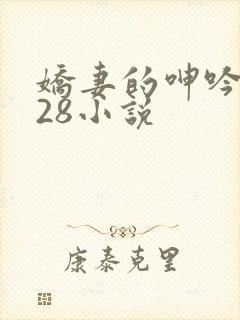 嬌妻的呻吟
28小說
康泰克里